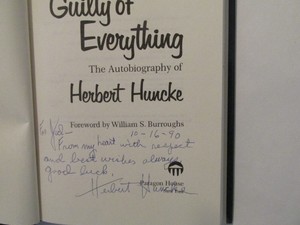 Guilty of
Everything
The Autobiography of
Herbert Huncke
Foreword by William S. Burroughs
To 10-16-90
From my heart with respect
and best wishes always
good luck.
Herbert Huncke
Paragon House